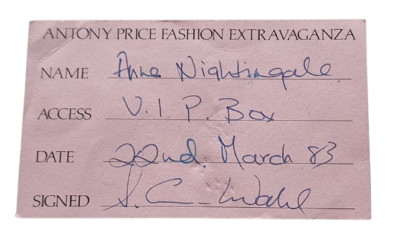 ANTONY PRICE FASHION EXTRAVAGANZA
NAME Anne Nightingale
ACCESS V.I.P. Box
DATE 22nd March 83
SIGNED